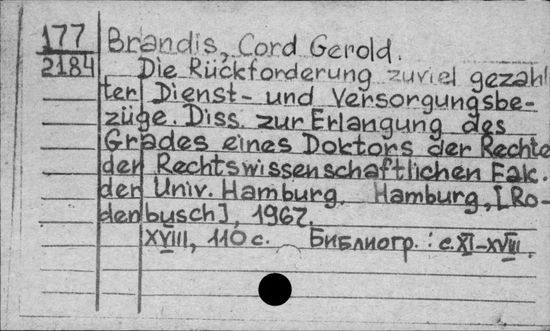 177
2184
Brandis, Cord Gerold.
Die Rückforderung zuviel gezahl
ter Dienst- und Versorgungsbe-
züge. Diss. zur Erlangung des
Grades eines Doktors der Rechte
der Rechtswissenschaftlichen Fak.
der Univ. Hamburg. Hamburg, [Ro-
denbusch], 1967.
XVIII, 110 c. Библиогр.: с. XI-XVIII.